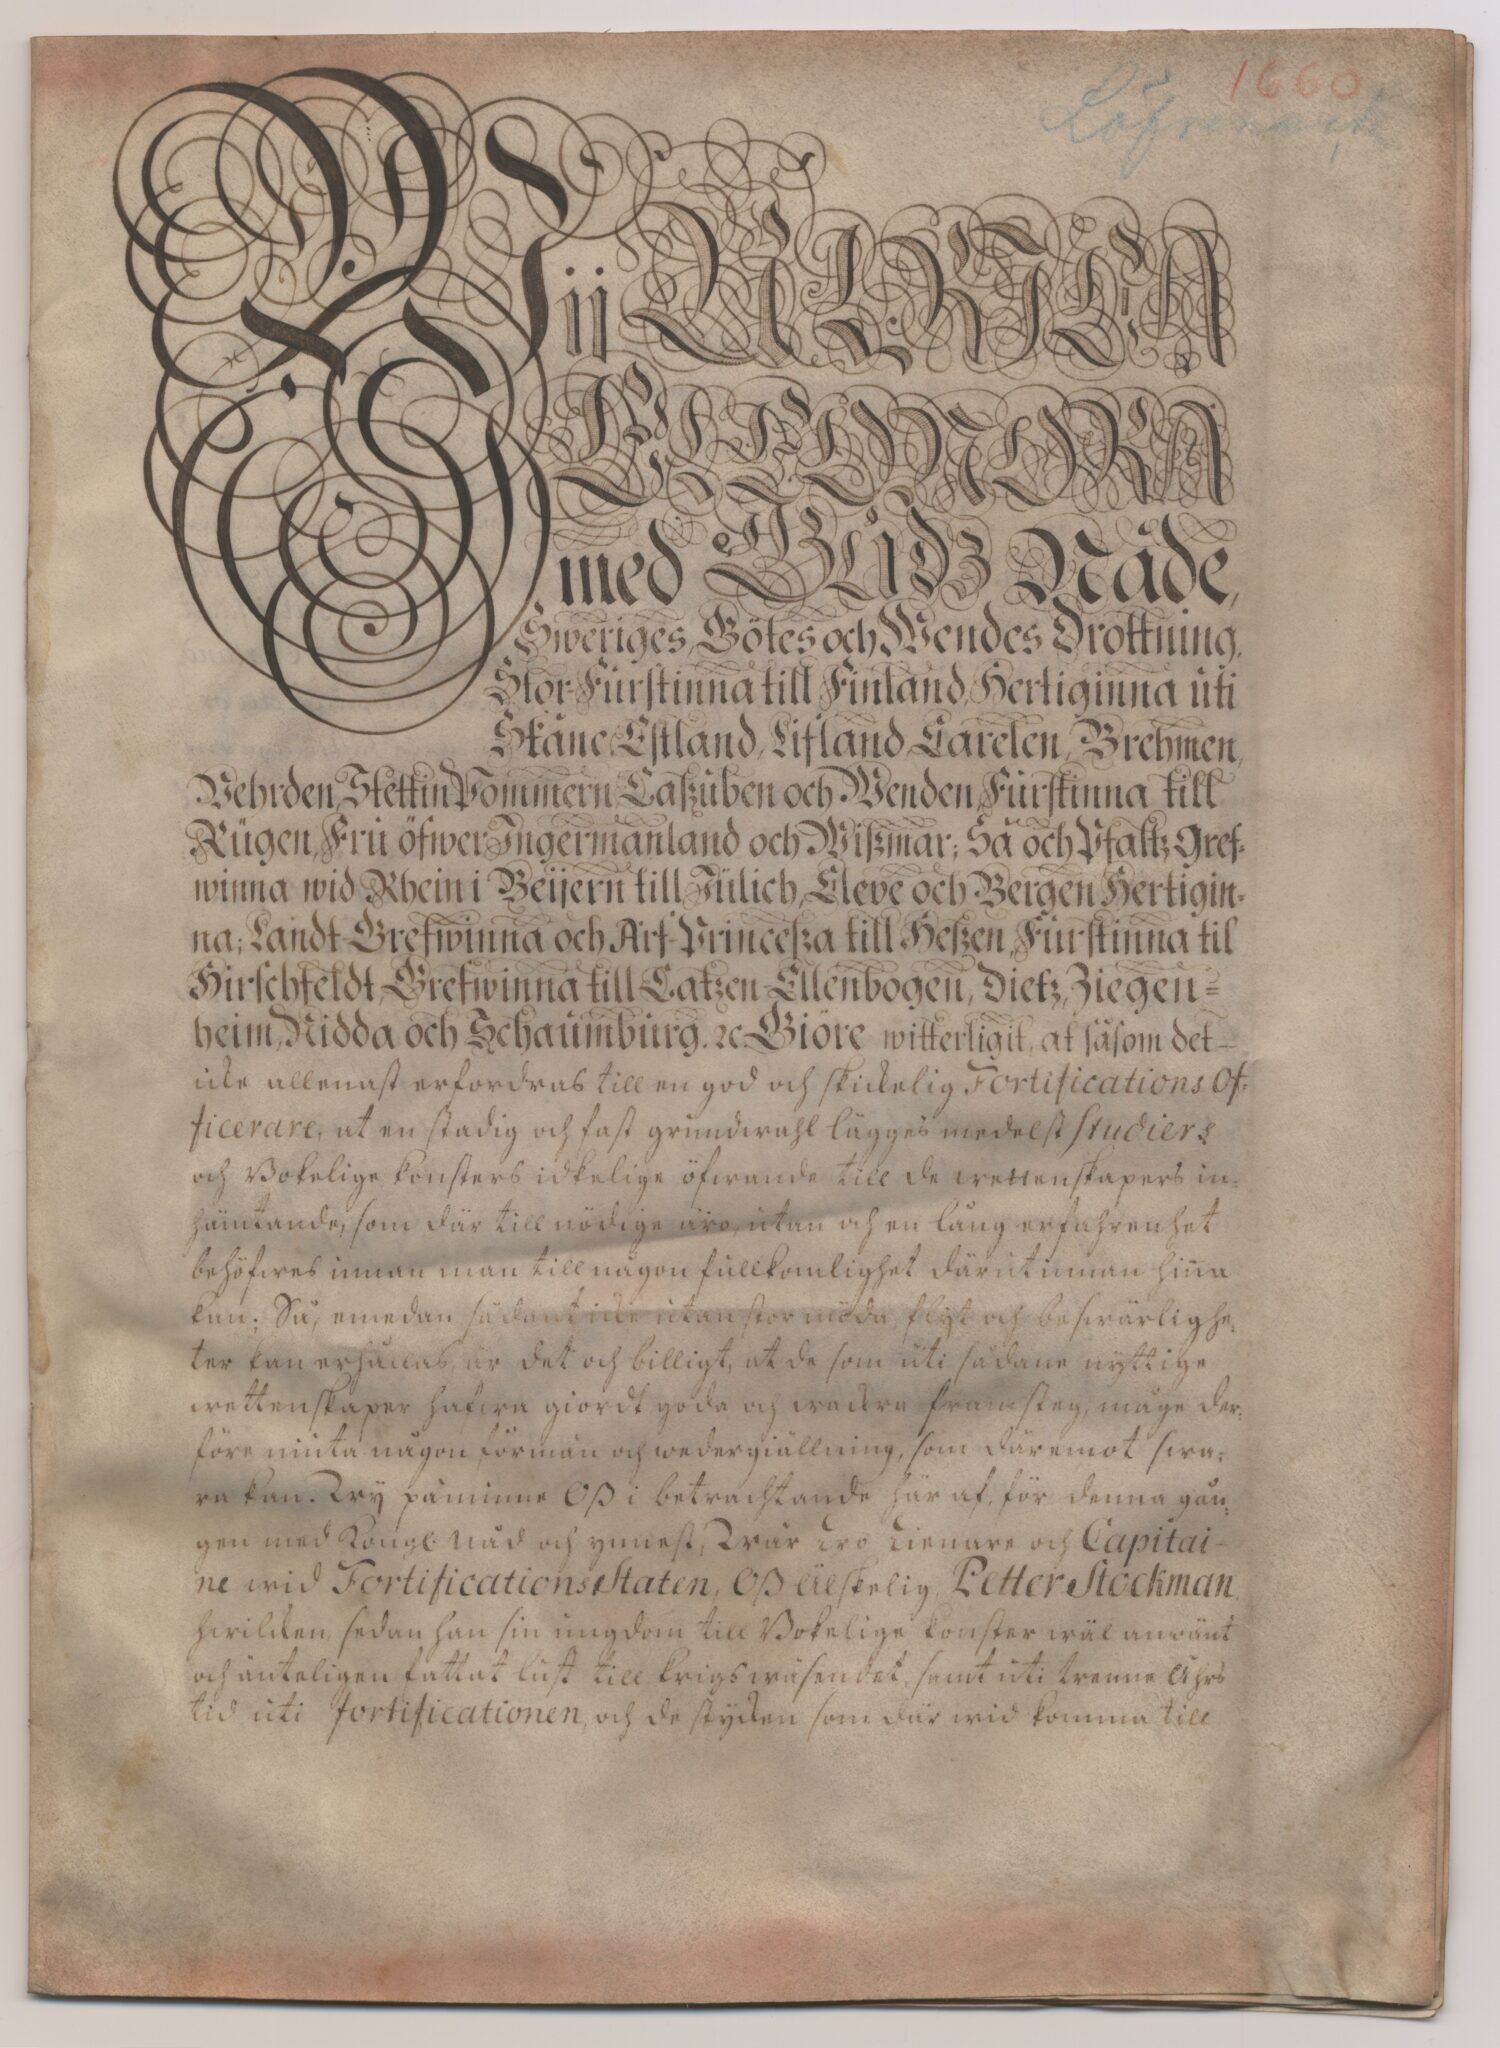 1660
Löfvenmark
Wii ULRICA
ELEONORA
med Gudz Nåde,
Sweriges, Götes och Wendes Drottning,
Stor-Fürstinna till Finland, Hertiginna uti
Skåne, Estland, Lifland, Carelen, Brehmen,
Vehrden, Stettin Pommern, Caßuben och Wenden, Fürstinna till
Rügen, Fru öfwer Ingermanland och Wißmar; Så och Pfaltz Gref-
winna wid Rhein i Beijern till Jülich, Cleve och Bergen Hertigin-
na; Landt-Grefwinna och Arf-Princeßa till Heßen, Fürstinna til
Hirschfeldt, Grefwinna till Catzen-Ellenbogen, Dietz, Ziegen-
heim, Nidda och Schaumburg. ꝛc. Giöre witterligit, at såsom det
icke allenast erfordras till en god och skickelig Fortifications Of-
ficerare, at en stadig och fast grundwahl lägges medelst studiers
och Bokelige konsters idkelige öfwande till de wettenskapers in-
hämtande, som där till nödige äro, utan och en lång erfahrenhet
behöfwes innan man till någon fullkomlighet därutinnan hinna
kan; Så, emedan sådant icke utan stor möda, flijt och beswärlighe-
ter kan erhållas, är det och billigt, at de som uti sådane nyttige
wettenskaper hafwa giordt goda och wackra framsteg, måge der-
före niuta någon förmån och wedergiällning, som däremot swa-
ra kan. Wy påminne Oß i betrachtande här af, för denna gån-
gen med Kongl. Nåd och ynnest, Wår tro tienare och Capitai-
ne wid Fortifications Staten, Oß Älskelig Petter Stockman,
hwilcken, sedan han sin ungdom till Bokelige konster wäl anwänt
och änteligen fattat lust till krigswäsendet, samt uti trenne Åhrs
tid uti fortificationen, och de stycken som där wid komma till